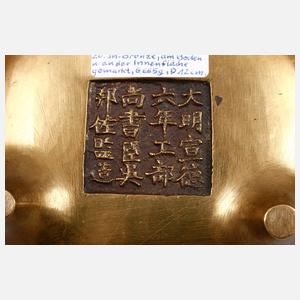 20. Jh. Bronze, am Boden
u. an der Innenfläche
gemarkt, G 665g, D 12 cm.
大明宣德
六年工部
尚書臣吳
邦佐監造